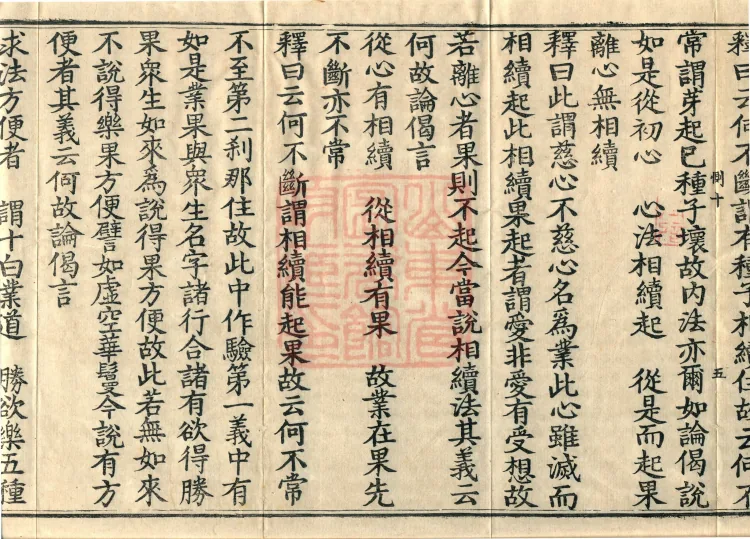 釋曰云何不斷謂有種子相續住故云何不
常謂芽起已種子壞故内法亦爾如論偈說
十 五
如是從初心　心法相續起　從是而起果
離心無相續
釋曰此謂慈心不慈心名爲業此心雖滅而
相續起此相續果起者謂愛非愛有受想故
若離心者果則不起今當説相續法其義云
何故論偈言
從心有相續　從相續有果　故業在果先
不斷亦不常
釋曰云何不斷謂相續能起果故云何不常
不至第二刹那住故此中作驗第一義中有
如是業果與衆生名字諸行合諸有欲得勝
果衆生如來爲說得果方便故此若無如來
不說得樂果方便譬如虛空華鬘今說有方
便者其義云何故論偈言
求法方便者　謂十白業道　勝欲樂五種